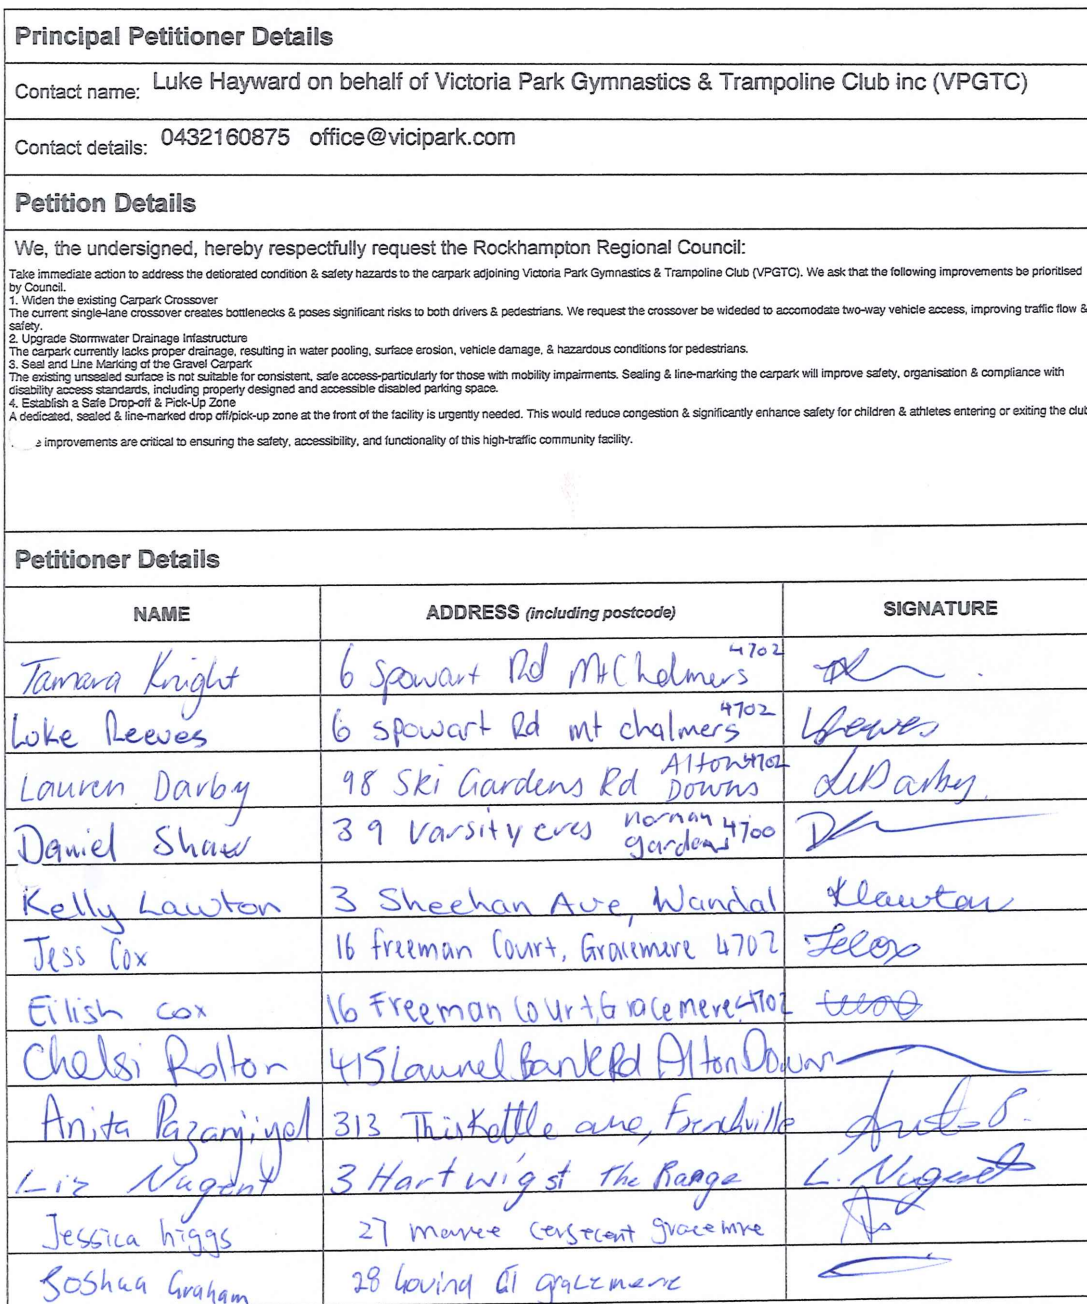 Principal Petitioner Details
Contact name: Luke Hayward on behalf of Victoria Park Gymnastics & Trampoline Club inc (VPGTC)
Contact details: 0432160875 office@vicipark.com
Petition Details
We, the undersigned, hereby respectfully request the Rockhampton Regional Council:
Take immediate action to address the detiorated condition & safety hazards to the carpark adjoining Victoria Park Gymnastics & Trampoline Club (VPGTC). We ask that the following improvements be prioritised
by Council.
1. Widen the existing Carpark Crossover
The current single-lane crossover creates bottlenecks & poses significant risks to both drivers & pedestrians. We request the crossover be wideded to accomodate two-way vehicle access, improving traffic flow &
safety.
2. Upgrade Stormwater Drainage Infastructure
The carpark currently lacks proper drainage, resulting in water pooling, surface erosion, vehicle damage, & hazardous conditions for pedestrians.
3. Seal and Line Marking of the Gravel Carpark
The existing unsealed surface is not suitable for consistent, safe access-particularly for those with mobility impairments. Sealing & line-marking the carpark will improve safety, organisation & compliance with
disability access standards, including properly designed and accessible disabled parking space.
4. Establish a Safe Drop-off & Pick-Up Zone
A dedicated, sealed & line-marked drop off/pick-up zone at the front of the facility is urgently needed. This would reduce congestion & significantly enhance safety for children & athletes entering or exiting the club
improvements are critical to ensuring the safety, accessibility, and functionality of this high-traffic community facility.
Petitioner Details
NAME ADDRESS (including postcode) SIGNATURE
Tamara Knight 6 Spowart Rd Mt Chalmers 4702
Luke Reeves 6 spowart Rd mt chalmers 4702 LReeves
Lauren Darby 98 Ski Gardens Rd Alton Downs 4702 Darby
Daniel Shaw 39 Varsity cres norman gardens 4700
Kelly Lawton 3 Sheehan Ave, Wandal KLawton
Jess Cox 16 freeman Court, Gracemere 4702
Eilish cox 16 Freeman Court, Gracemere 4702
Chelsi Rolton 415 Laurel Bank Rd Alton Downs
Anita 313 Thirkettle ave, Frenchville
Liz Nugent 3 Hartwig st The Range L. Nugent
Jessica higgs 27 maree gracemre
Joshua Graham 28